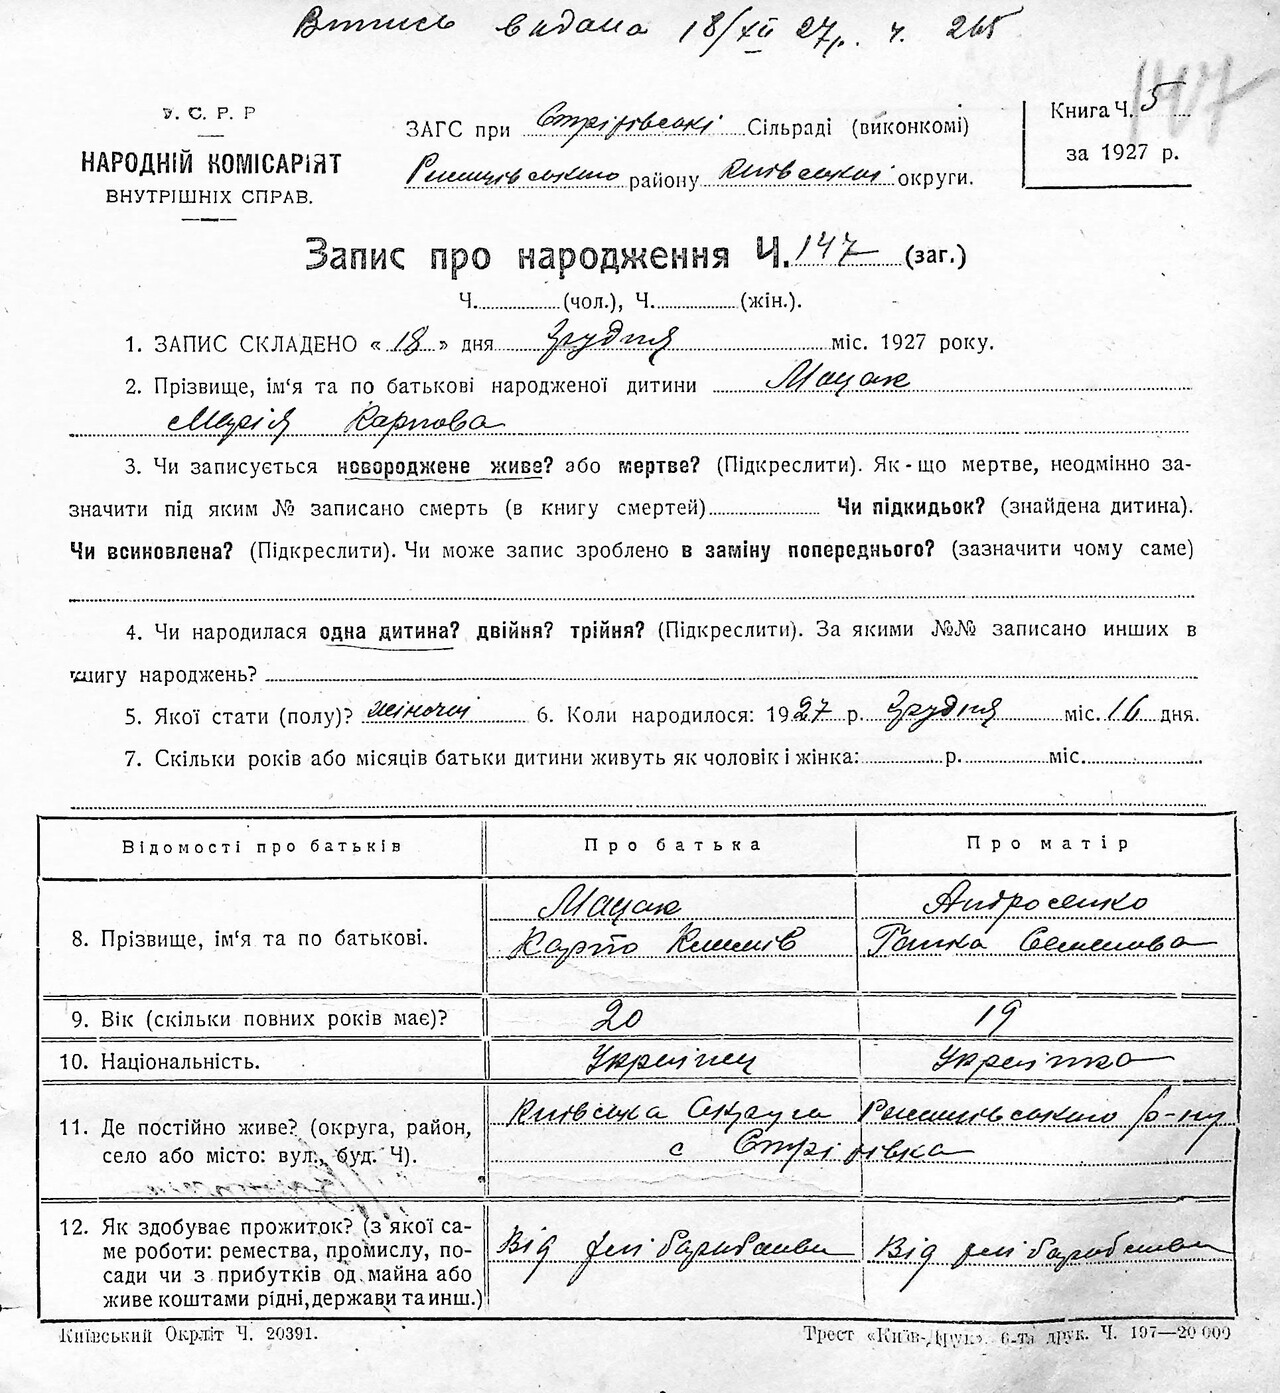 Витись видана 18/XII 27р. ч. 265
147
У. С. Р. Р
НАРОДНІЙ КОМІСАРІЯТ
ВНУТРІШНІХ СПРАВ.
ЗАГС при Стрітівські Сільраді (виконкомі)
Ржищівського району Київської округи.
Книга Ч. 5
за 1927 р.
Запис про народження Ч. 147 (заг.)
Ч. (чол.), Ч. (жін.).
1. ЗАПИС СКЛАДЕНО « 18 » дня Грудня міс. 1927 року.
2. Прізвище, ім‘я та по батькові народженої дитини Мацак
Марія Карпова
3. Чи записується новороджене живе? або мертве? (Підкреслити). Як-що мертве, неодмінно за-
значити під яким № записано смерть (в книгу смертей) Чи підкидьок? (знайдена дитина).
Чи всиновлена? (Підкреслити). Чи може запис зроблено в заміну попереднього? (зазначити чому саме)
4. Чи народилася одна дитина? двійня? трійня? (Підкреслити). За якими №№ записано инших в
книгу народжень?
5. Якої стати (полу)? жіночої 6. Коли народилося: 1927 р. Грудня міс. 16 дня.
7. Скільки років або місяців батьки дитини живуть як чоловік і жінка: р. міс.
Відомості про батьків Про батька Про матір
8. Прізвище, ім‘я та по батькові. Мацак Андросенко
Карпо Климів Ганка Семенова
9. Вік (скільки повних років має)? 20 19
10. Національність. Українец Українка
11. Де постійно живе? (округа, район, Київська Округа Ржищівського р-ну
село або місто: вул., буд. Ч). с Стрітівка
12. Як здобуває прожиток? (з якої са-
ме роботи: ремества, промислу, по- Від хліборобства Від хліборобства
сади чи з прибутків од майна або
живе коштами рідні, держави та инш.)
Київський Окрліт Ч. 20391. Трест «Київ-Друк». 6-та друк. Ч. 197—20 000